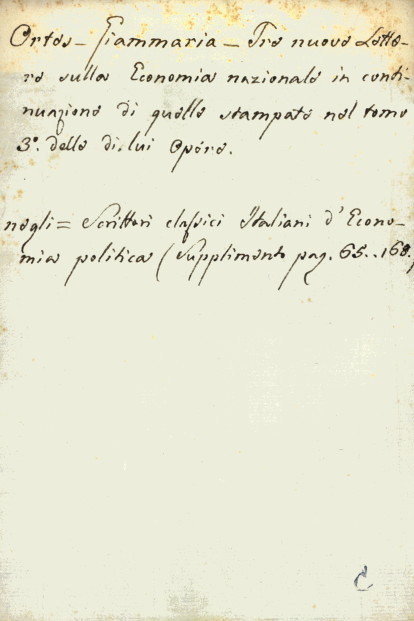 Ortes - Giammaria - Tre nuove Lette-
re sulla Economia nazionale in conti-
nuazione di quelle stampate nel tomo
3º. delle di lui Opere.
negli = Scrittori classici Italiani d'Econo-
mia politica (Supplimento pag. 65..168.)
C